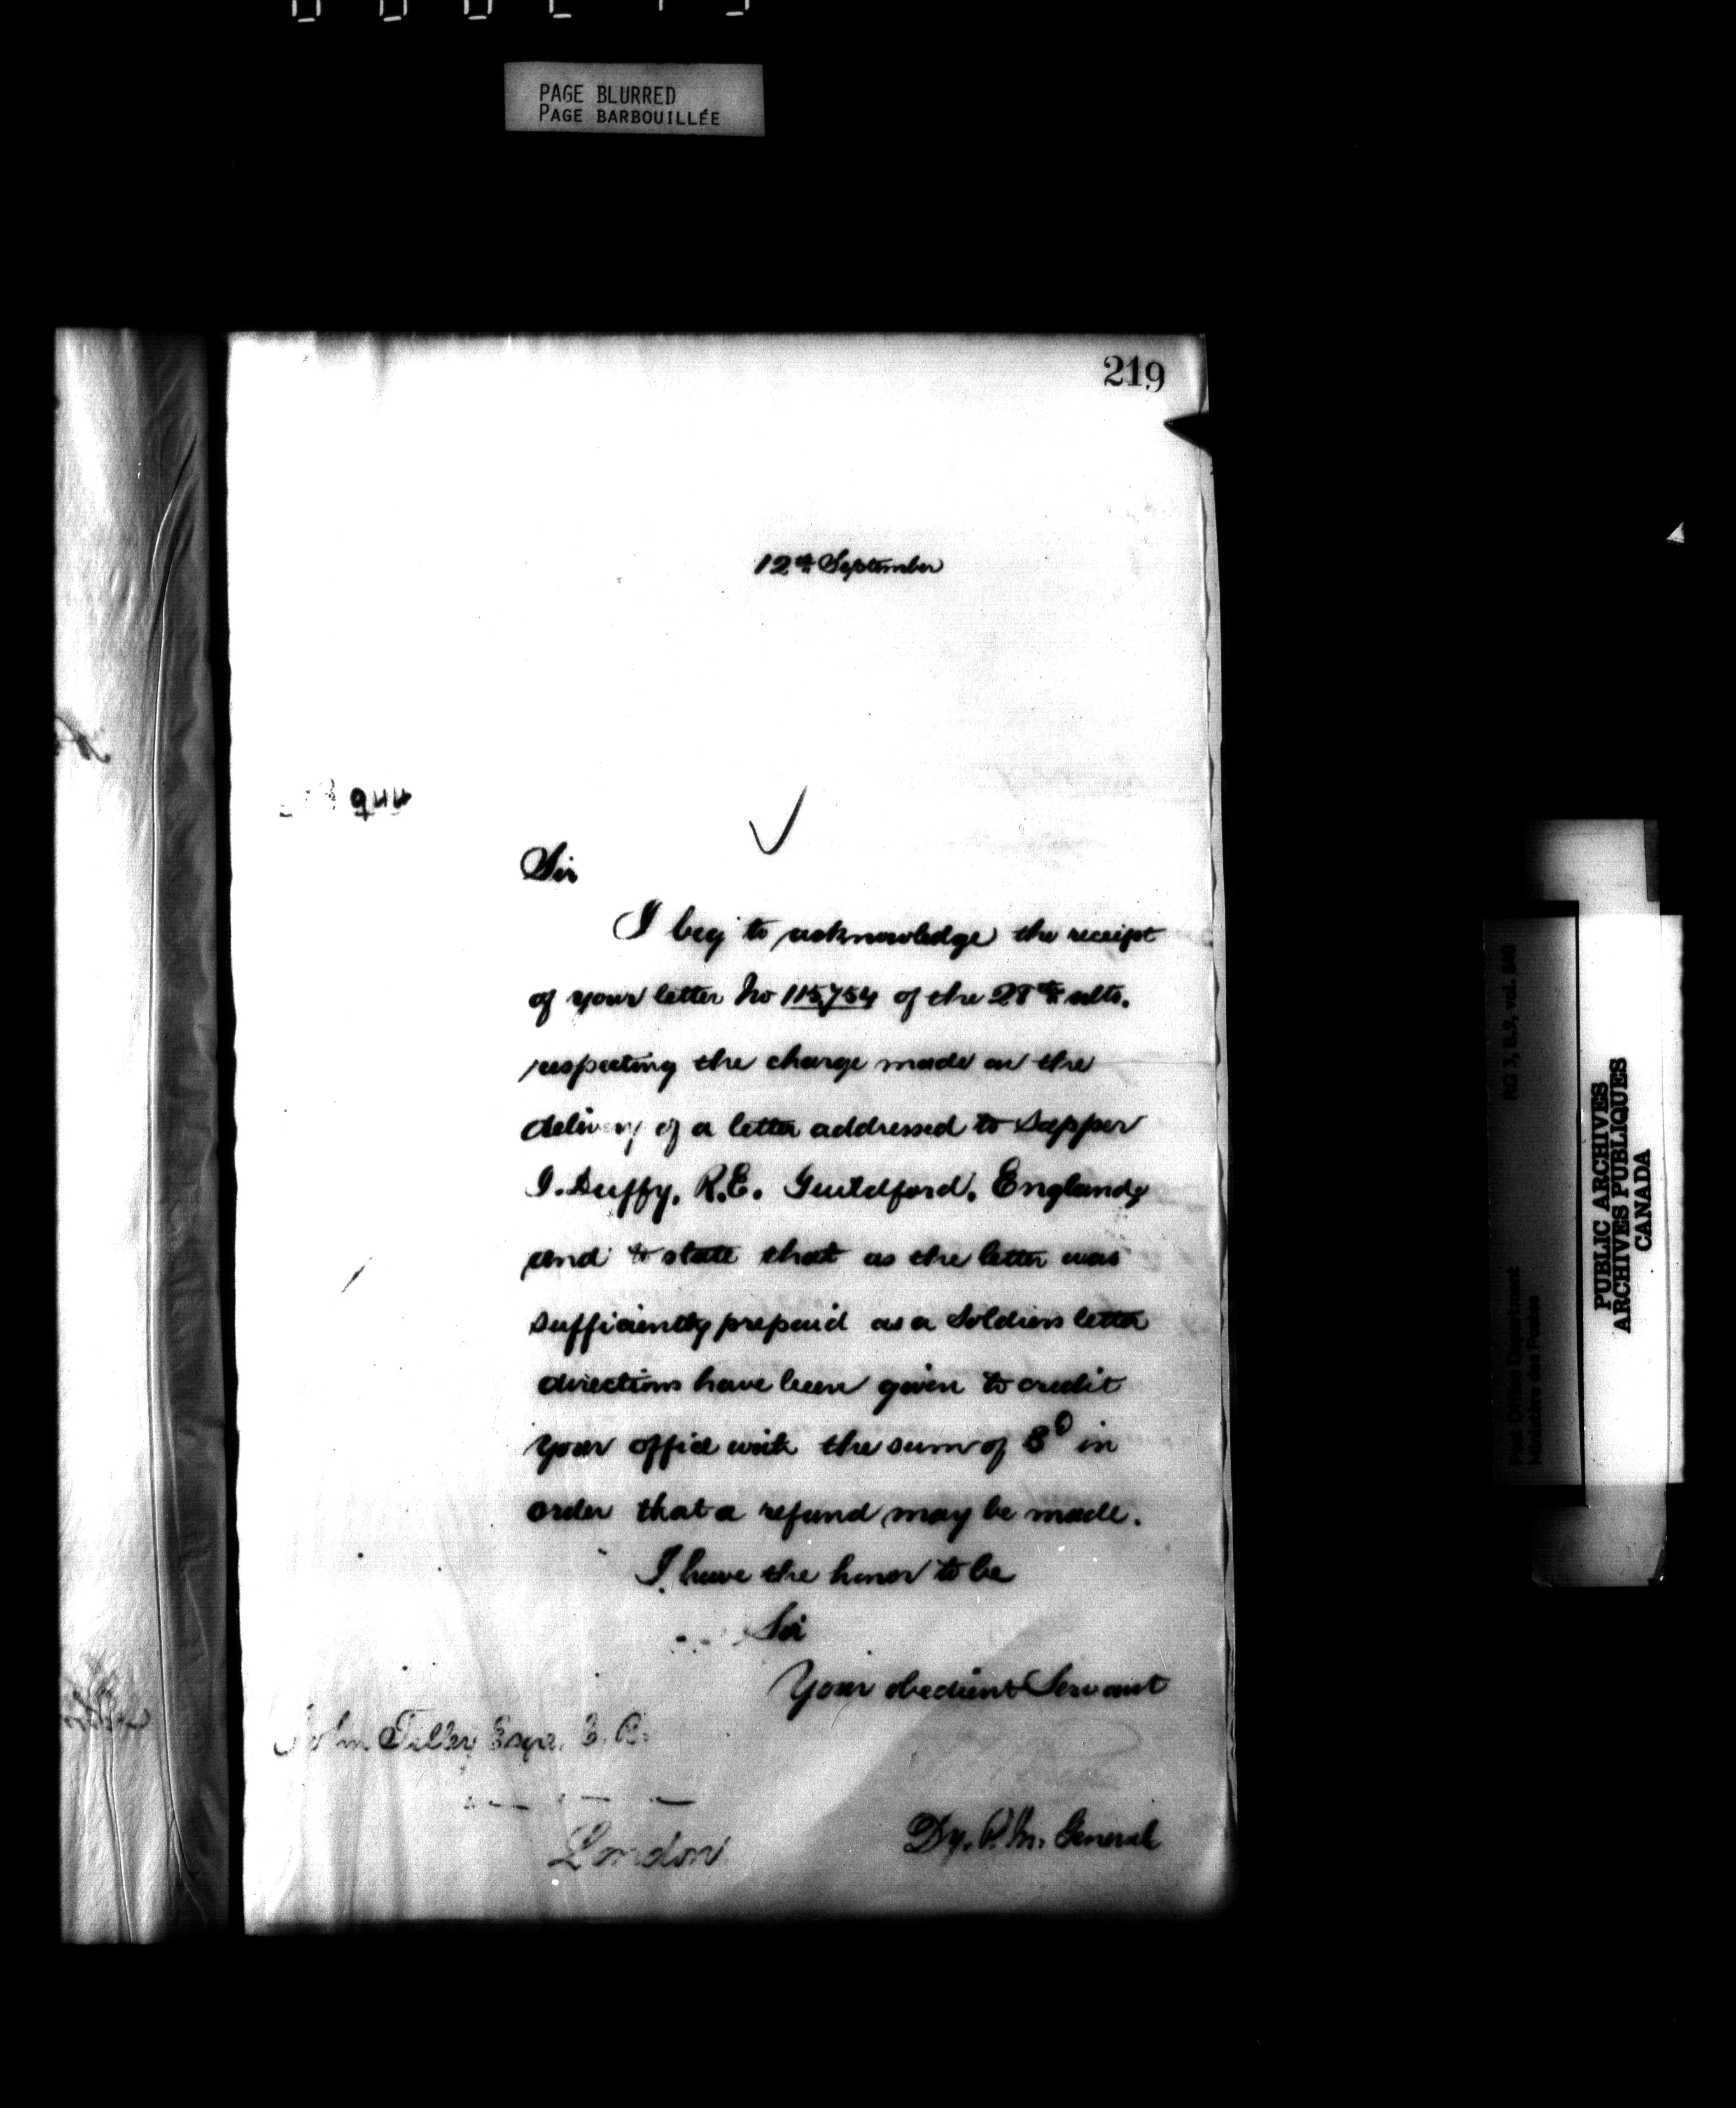 PAGE BLURRED
PAGE BARBOUILLÉE
219
12th September
944
Sir
I beg to acknowledge the receipt
of your letter No 115,754 of the 28th ulto.
respecting the charge made on the
delivery of a letter addressed to Sapper
I. Duffy, R.E. Guildford, England,
and to state that as the letter was
sufficiently prepaid as a Soldiers letter
directions have been given to credit
your office with the sum of 8d in
order that a refund may be made.
I have the honor to be
Sir
Your obedient Servant
John Tilley Esqr. C.B.
London
Dy. P.M. General
RG 3, B.9, vol. 840
Post Office Department
Ministère des Postes
PUBLIC ARCHIVES
ARCHIVES PUBLIQUES
CANADA